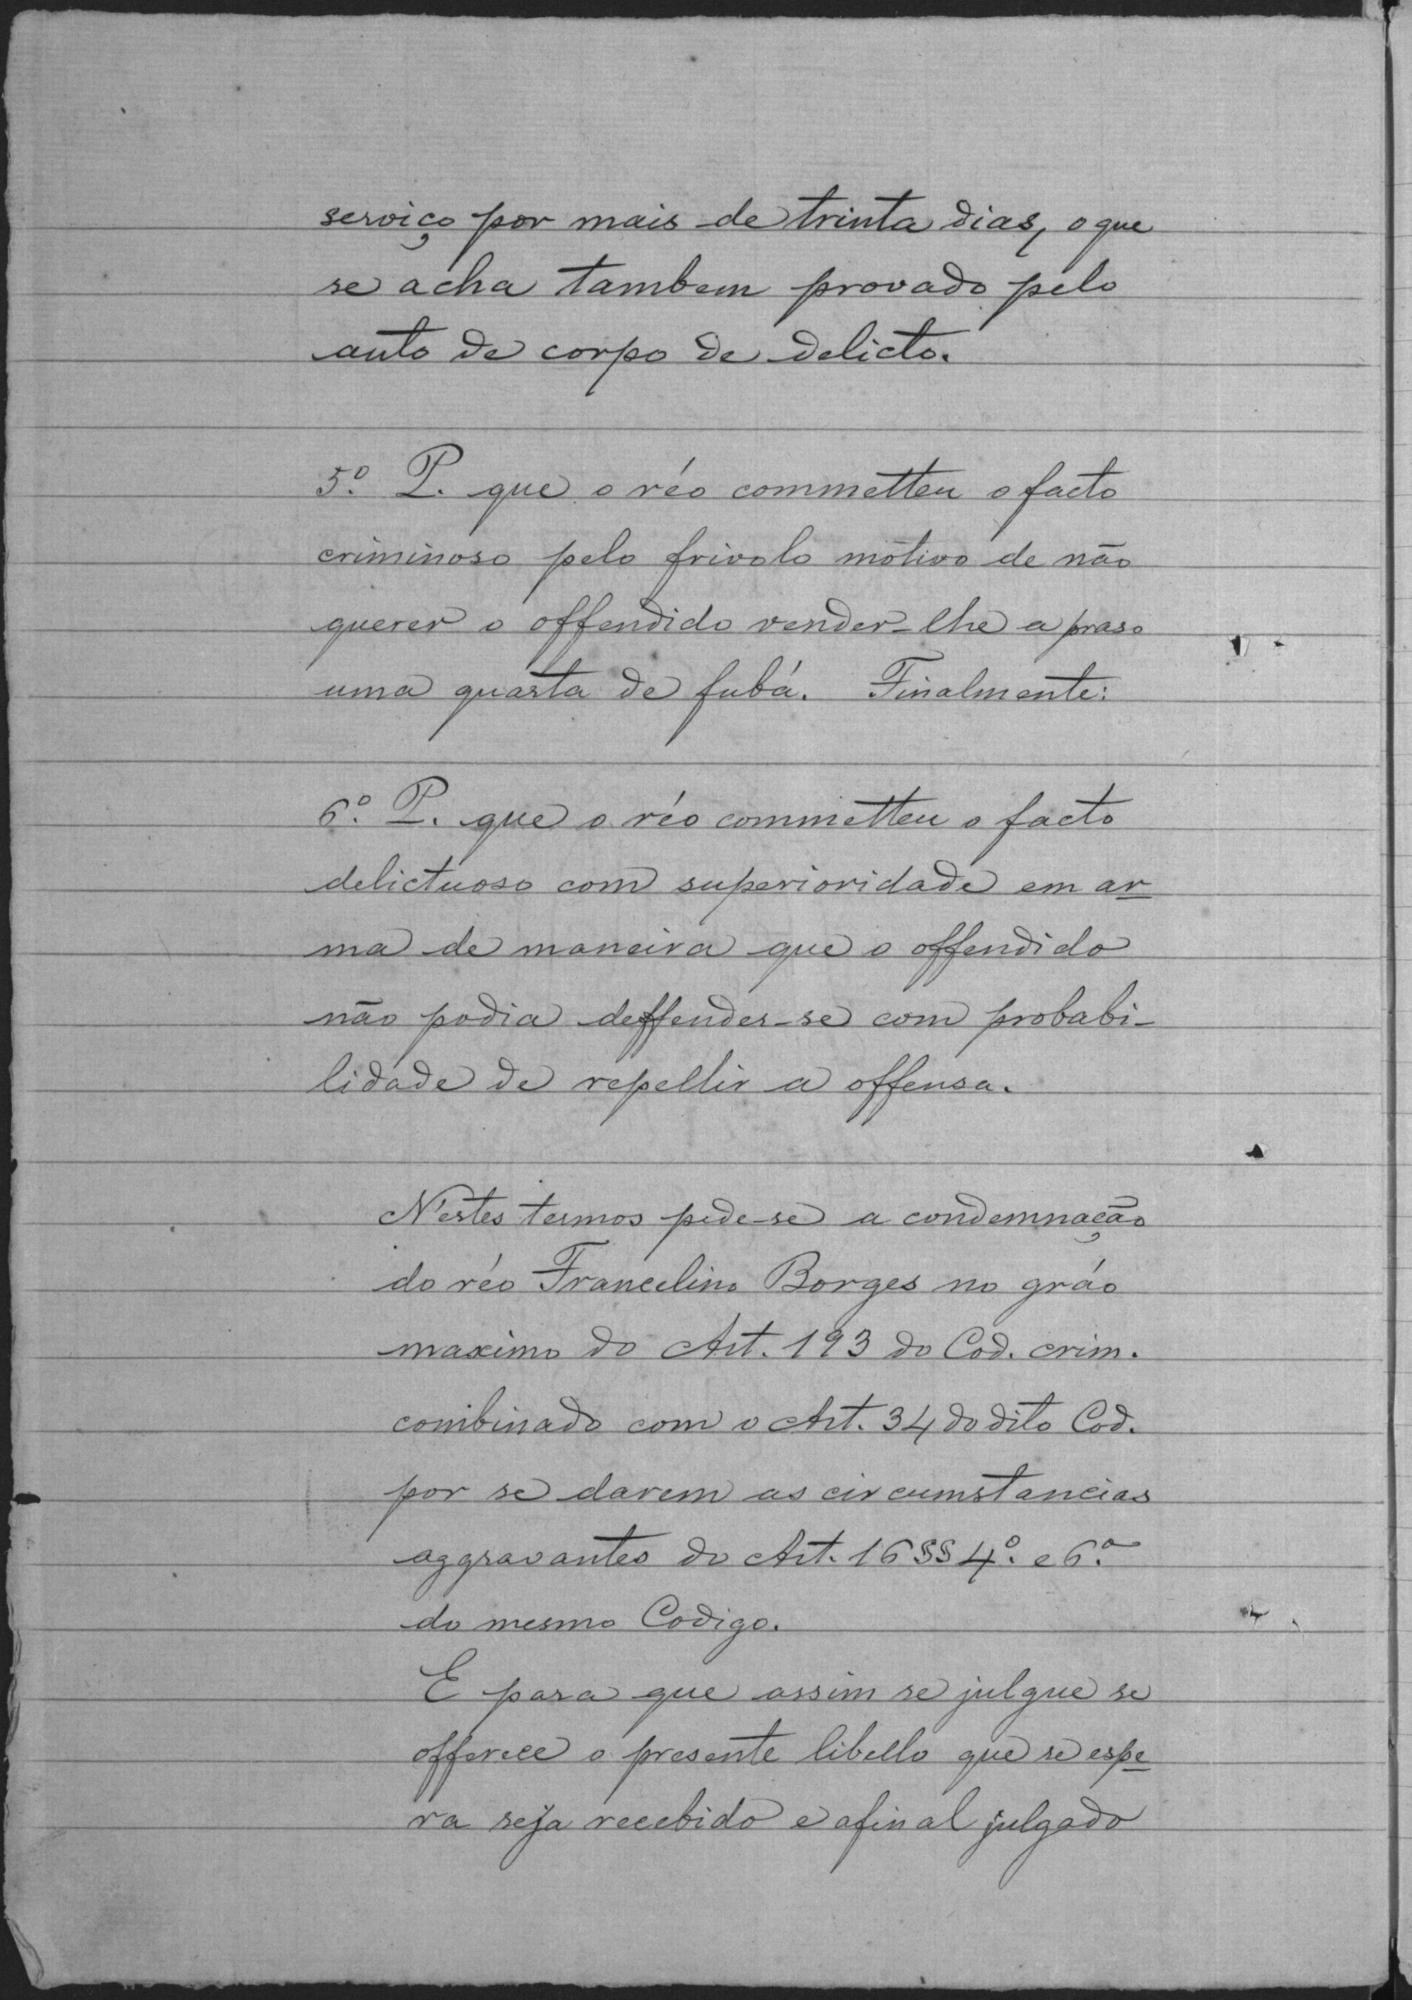 serviço por mais de trinta dias, o que
se acha tambem provado pelo
auto de corpo de delicto.
5º. P. que o réo commetteu o facto
criminoso pelo frivolo motivo de não
querer o offendido vender-lhe a praso
uma quarta de fubá. Finalmente:
6º. P. que o réo commetteu o facto
delictuoso com superioridade em ar
ma de maneira que o offendido
não podia deffender-se com probabi-
lidade de repellir a offensa.
N'estes termos pede-se a condemnação
do réo Francelino Borges no gráo
maximo do Art. 193 do Cod. crim.
combinado com o Art. 34 do dito Cod.
por se darem as circumstancias
aggravantes do Art. 16 §§ 4º. e 6º.
do mesmo Codigo.
E para que assim se julgue se
offerece o presente libello que se espe
ra seja recebido e afinal julgado